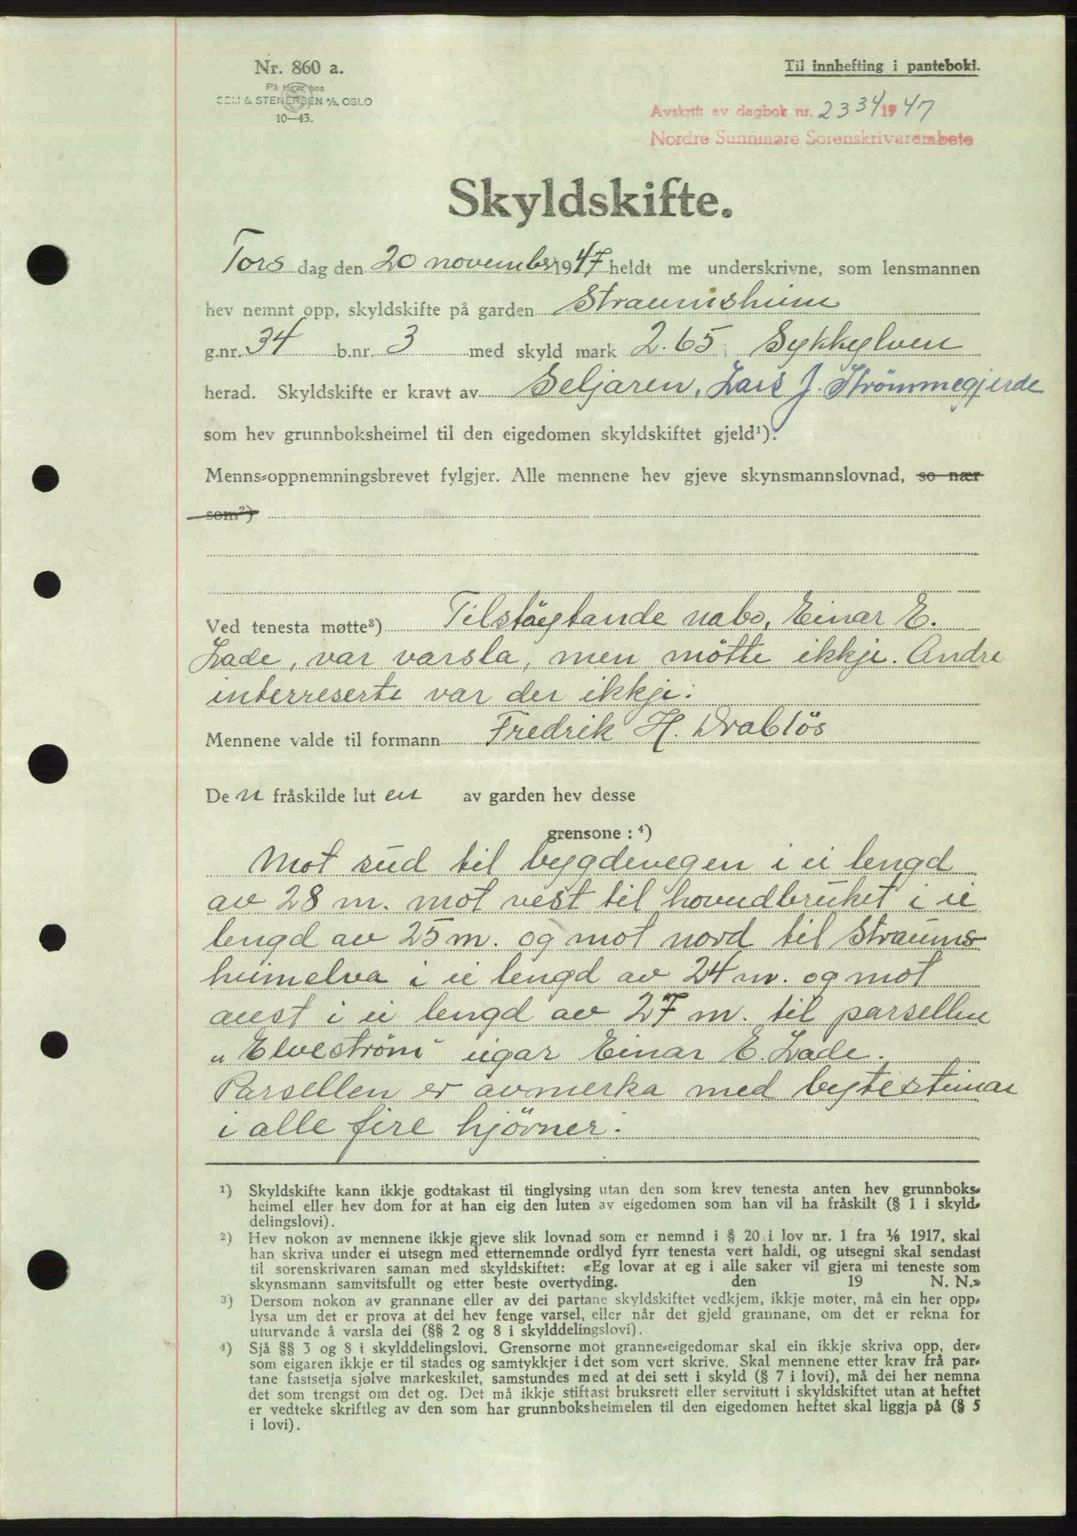 Nr. 860 a.
På lager hos
SEM & STENERSEN A/S, OSLO
10—43.
Til innhefting i panteboki.
Avskrift av dagbok nr. 2334 1947
Nordre Sunnmøre Sorenskrivarembete
Skyldskifte.
Tors dag den 20 november 1947 heldt me underskrivne, som lensmannen
hev nemnt opp, skyldskifte på garden Straumsheim
g.nr. 34 b.nr. 3 med skyld mark 2.65 Sykkylven
herad. Skyldskifte er kravt av Seljaren, Lars J. Strömmegjerde
som hev grunnboksheimel til den eigedomen skyldskiftet gjeld¹).
Menns=oppnemningsbrevet fylgjer. Alle mennene hev gjeve skynsmannslovnad, so nær
som²)
Ved tenesta møtte³) Tilstöytande nabo, Einar E.
Lade, var varsla, men mötte ikkje. Andre
interreserte var der ikkje.
Mennene valde til formann Fredrik H. Drablös
De n fråskilde lut en av garden hev desse
grensone : ⁴)
Mot süd til bygdevegen i ei lengd
av 28 m. mot vest til hovudbrüket i ei
lengd av 25 m. og mot nord til Straums-
heimelva i ei lengd av 24 m. og mot
aust i ei lengd av 27 m. til parsellen
„Elveström" eigar Einar E. Lade.
Parsellen er avmerka med bytesteinar
i alle fire hjörner.
¹) Skyldskifte kann ikkje godtakast til tinglysing utan den som krev tenesta anten hev grunnboks=
heimel eller hev dom for at han eig den luten av eigedomen som han vil ha fråskilt (§ 1 i skyld=
delingslovi).
²) Hev nokon av mennene ikkje gjeve slik lovnad som er nemnd i § 20 i lov nr. 1 fra ⅙ 1917, skal
han skriva under ei utsegn med etternemnde ordlyd fyrr tenesta vert haldi, og utsegni skal sendast
til sorenskrivaren saman med skyldskiftet: «Eg lovar at eg i alle saker vil gjera mi teneste som
skynsmann samvitsfullt og etter beste overtyding. den 19 N. N.»
³) Dersom nokon av grannane eller av dei partane skyldskiftet vedkjem, ikkje møter, må ein her opp=
lysa um det er prova at dei hev fenge varsel, eller når det gjeld grannane, om det er rekna for
uturvande å varsla dei (§§ 2 og 8 i skylddelingslovi).
⁴) Sjå §§ 3 og 8 i skylddelingslovi. Grensorne mot granne=eigedomar skal ein ikkje skriva opp, der=
som eigaren ikkje er til stades og samtykkjer i det som vert skrive. Skal mennene etter krav frå par=
tane fastsetja sjølve markeskilet, samstundes med at dei sett i skyld (§ 7 i lovi), må dei her nemna
det som trengst om det og. Det må ikkje stiftast bruksrett eller servitutt i skyldskiftet utan at heftet
er vedteke skriftleg av den som har grunnboksheimelen til den eigedomen heftet skal liggja på (§ 5
i lovi).